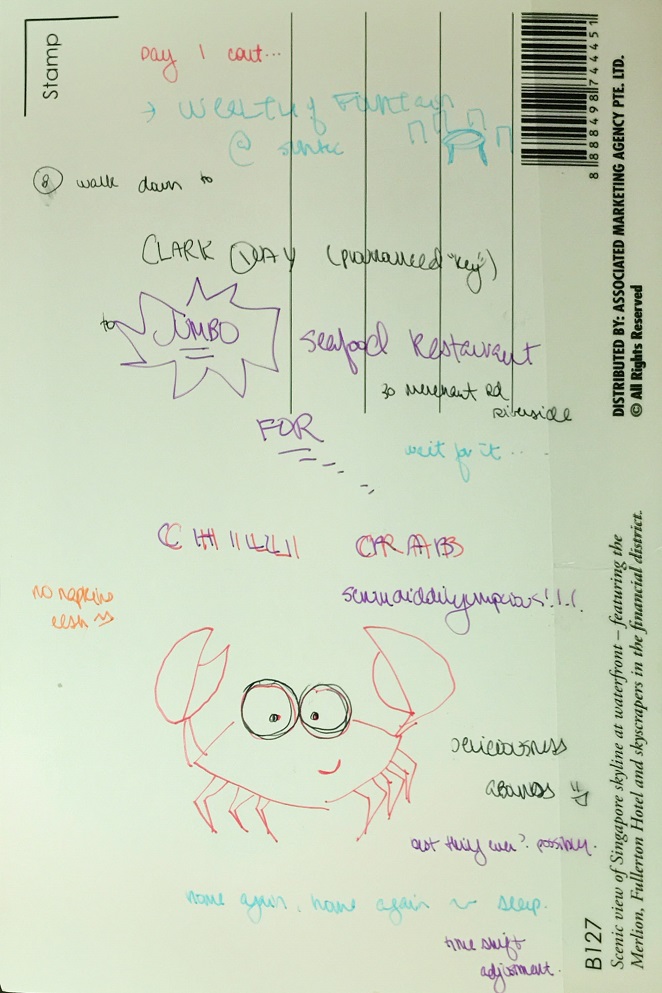 Stamp
Day 1 cont...
→ Wealthy Fantain
@ suntec
⑧ walk down to
CLARK QUAY (pronounced "key")
to JUMBO Seafood Restaurant
30 merchant Rd
Riverside
FOR
wait for it...
CCHHIILLLLII CRRAABBS
no napkins
eesh
scrumdiddilyumpcious!!!
deliciousness
abounds
best thing ever? possibly.
home again, home again ~ sleep.
time shift
adjustment.
8 888498 744451
DISTRIBUTED BY: ASSOCIATED MARKETING AGENCY PTE. LTD.
© All Rights Reserved
B127
Scenic view of Singapore skyline at waterfront – featuring the
Merlion, Fullerton Hotel and skyscrapers in the financial district.